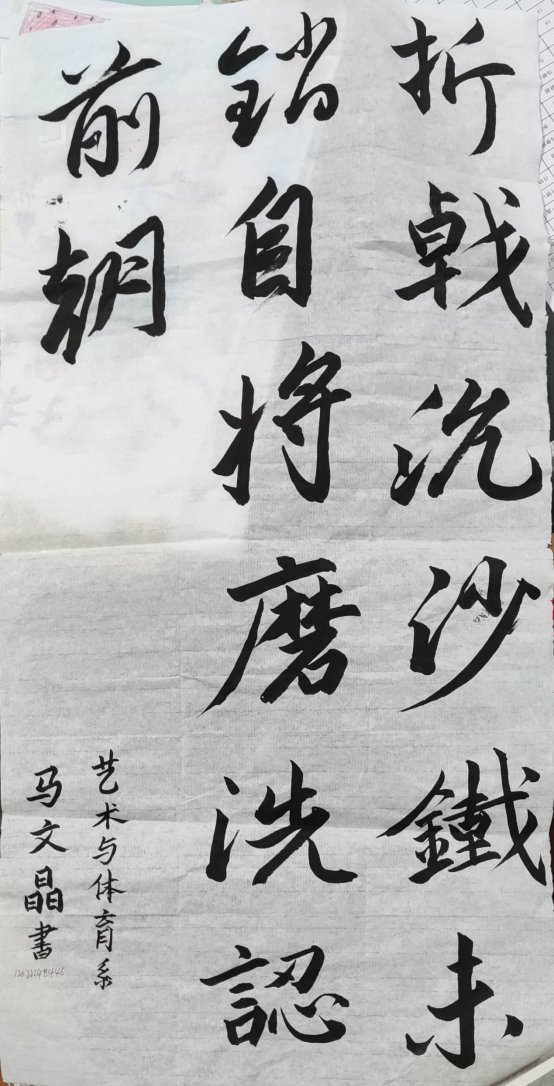 折戟沉沙鐵未
銷自將磨洗認
前朝
艺术与体育系
马文晶書